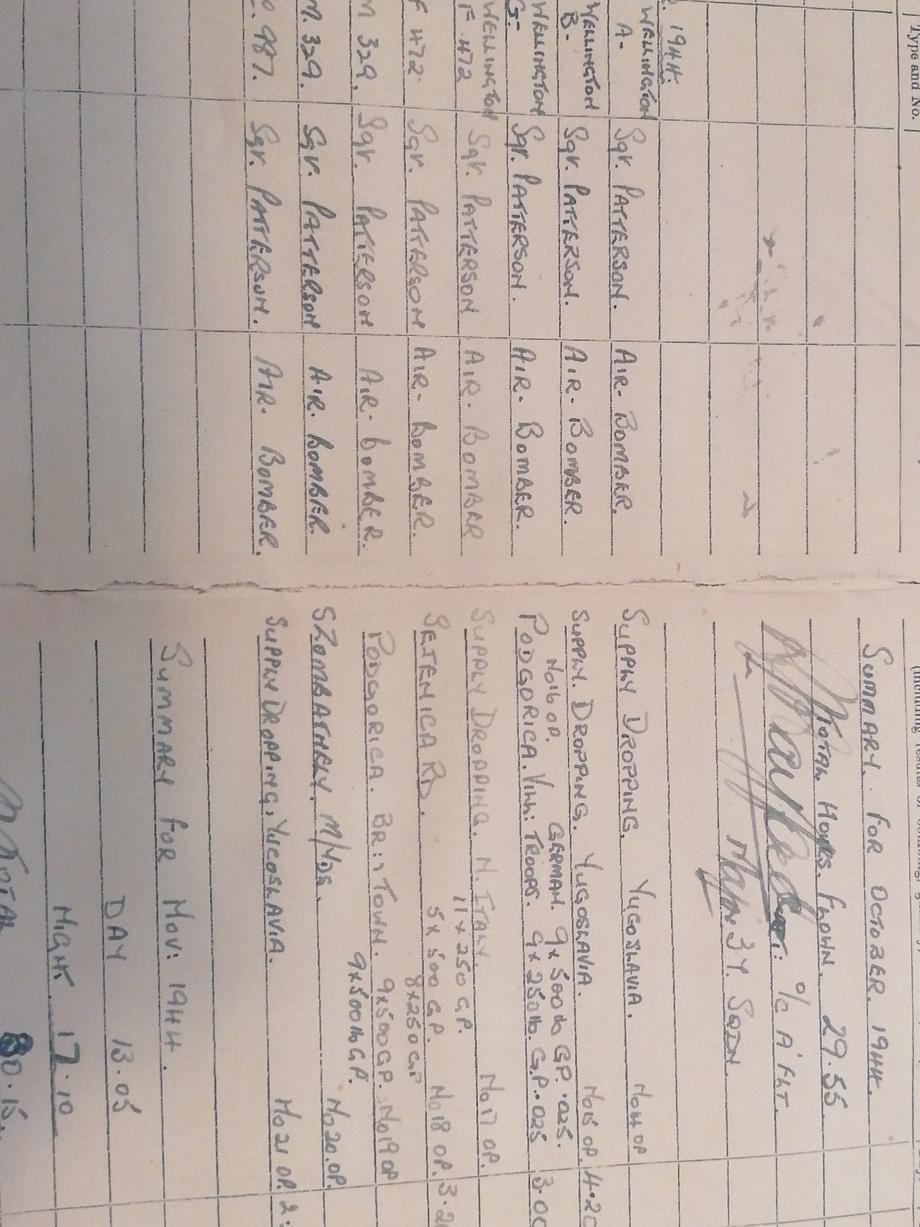 Type and No.
SUMMARY. FOR OCTOBER 1944.
TOTAL HOURS. FLOWN. 29.55
O/C A' FLT.
37 SQDN.
1944.
WELLINGTON A- SGT. PATTERSON. AIR-BOMBER. SUPPLY DROPPING. YUGOSLAVIA. No 14 OP
WELLINGTON B- SGT. PATTERSON. AIR-BOMBER. SUPPLY. DROPPING. YUGOSLAVIA. No 15 OP. 4.20
No 16 OP. GERMAN. 9 x 500 lb GP. .025.
WELLINGTON G- SGT. PATTERSON. AIR-BOMBER. PODGORICA. VILL: TROOPS. 9 x 250 lb. G.P. .025 3.00
WELLINGTON F. 472 SGT. PATTERSON AIR-BOMBER SUPPLY DROPPING. N. ITALY. No 17 OP.
11 x 250 GP.
F 472. SGT. PATTERSON AIR-BOMBER. SETENICA RD. 5 x 500 GP. No 18 OP. 3.2
8 x 250 GP
M 329. SGT. PATTERSON AIR-BOMBER. PODGORICA. BR: TOWN. 9 x 500 GP. No 19 OP
9 x 500 lb GP.
M. 329. SGT. PATTERSON AIR. BOMBER. SZOMBATHELY. M/YDS. No 20. OP.
987. SGT. PATTERSON. AIR. BOMBER. SUPPLY DROPPING. YUGOSLAVIA. No 21 OP. 2.
SUMMARY FOR NOV: 1944.
DAY 13.05
NIGHT 17.10
TOTAL 30.15.